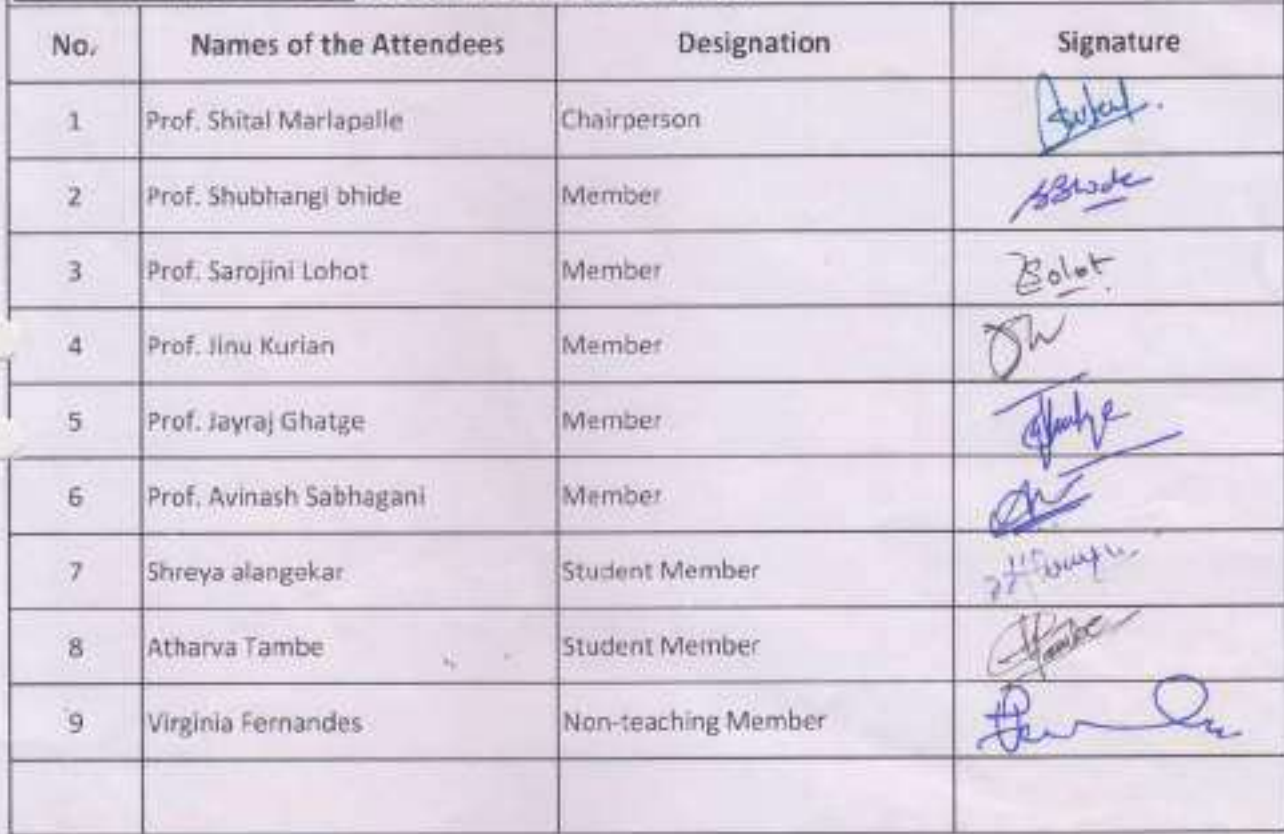 No. Names of the Attendees Designation Signature
1 Prof. Shital Marlapalle Chairperson
2 Prof. Shubhangi bhide Member SBhide
3 Prof. Sarojini Lohot Member
4 Prof. Jinu Kurian Member
5 Prof. Jayraj Ghatge Member
6 Prof. Avinash Sabhagani Member
7 Shreya alangekar Student Member
8 Atharva Tambe Student Member
9 Virginia Fernandes Non-teaching Member